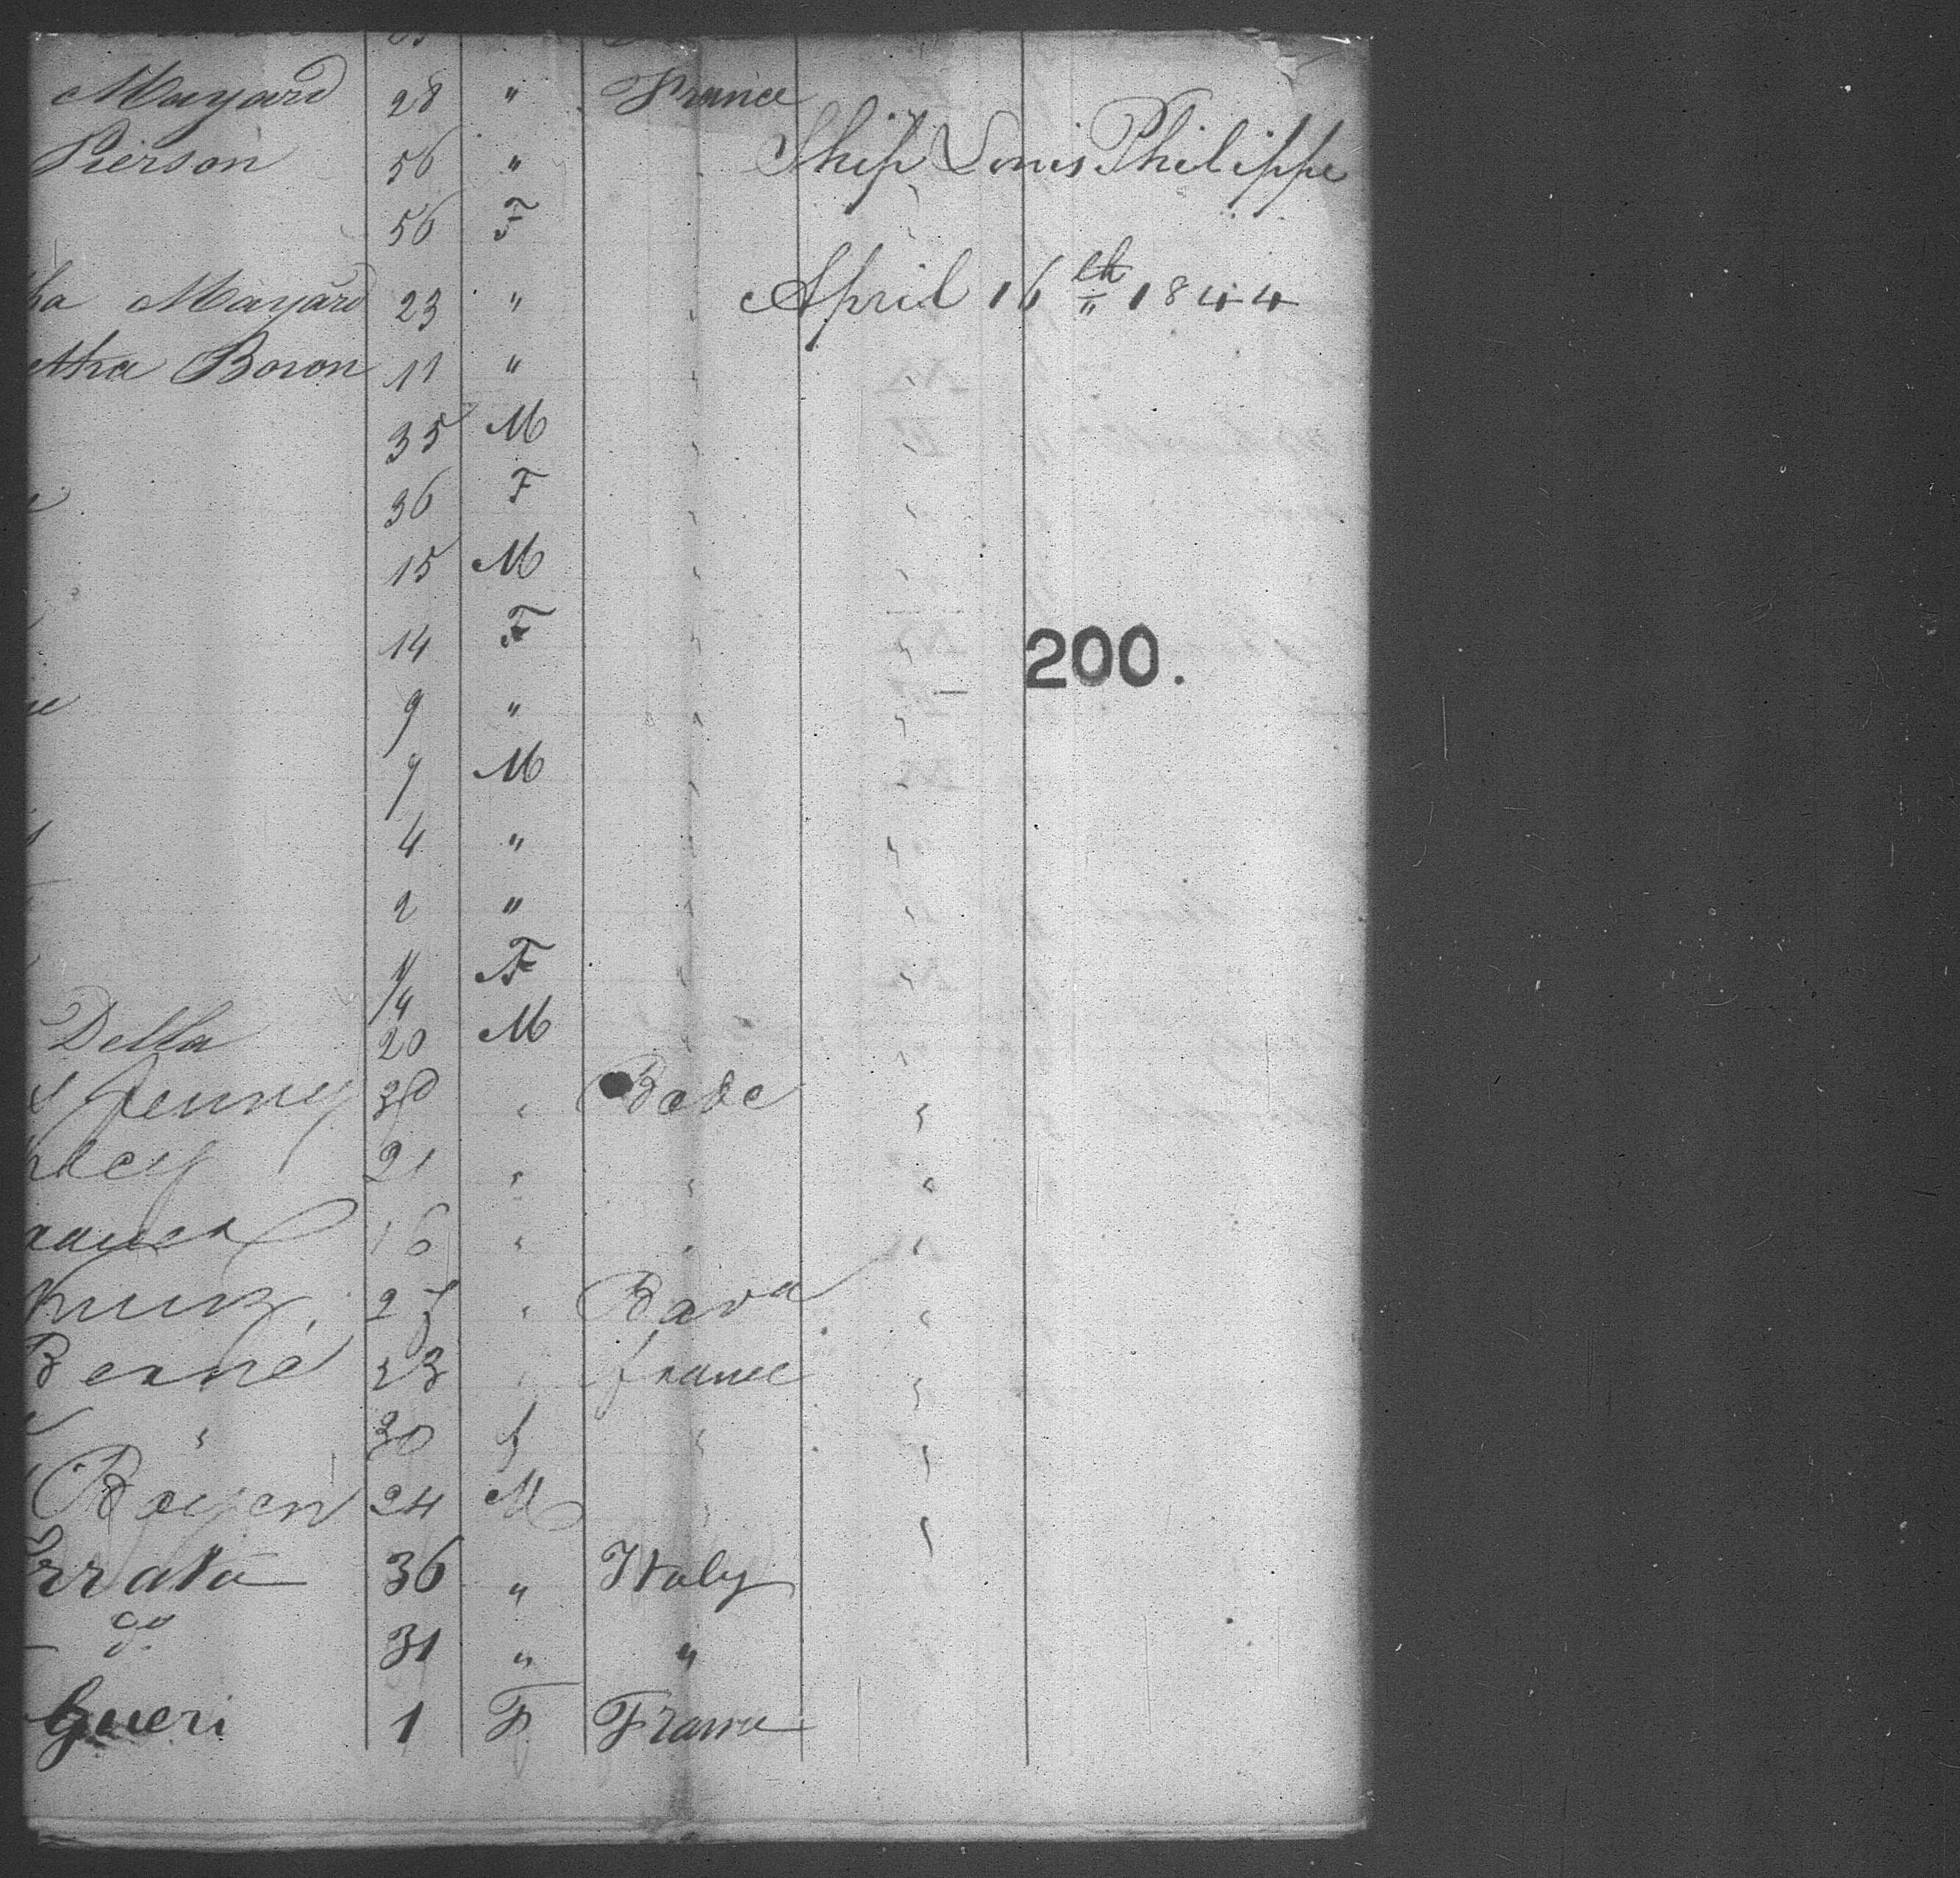 Mayard 28 " France
Ship Louis Philippe
Pierson 56 "
56 F
April 16th 1844
ha Mayard 23 "
etha Boron 11 "
35 M
36 F
15 M
14 F
9 "
7 M
4 "
2 "
1/4 F
Della 20 M
Jenny Bade
21 "
16 "
Kunz Bava
Berne 23 " france
" 30 f "
Boyen 24 M
rrata 36 " Italy
do 31 " "
Gueri 1 F France
200.